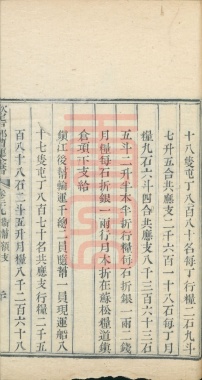 十八隻屯丁八百八名每丁行糧二石九斗
七升五合共應支二千六百一十八石每丁月
糧九石六斗四合共應支八千三百六十三石
五斗二升半本半折行糧每石折銀一兩二錢
月糧每石折銀一兩行月本折在蘇松糧道鎮
倉項下支給
鎮江後幫輪運千總二員隨幫一員現運船八
十七隻屯丁八百七十名共應支行糧二千五
百八十八石二斗五升月糧八千二百六十八